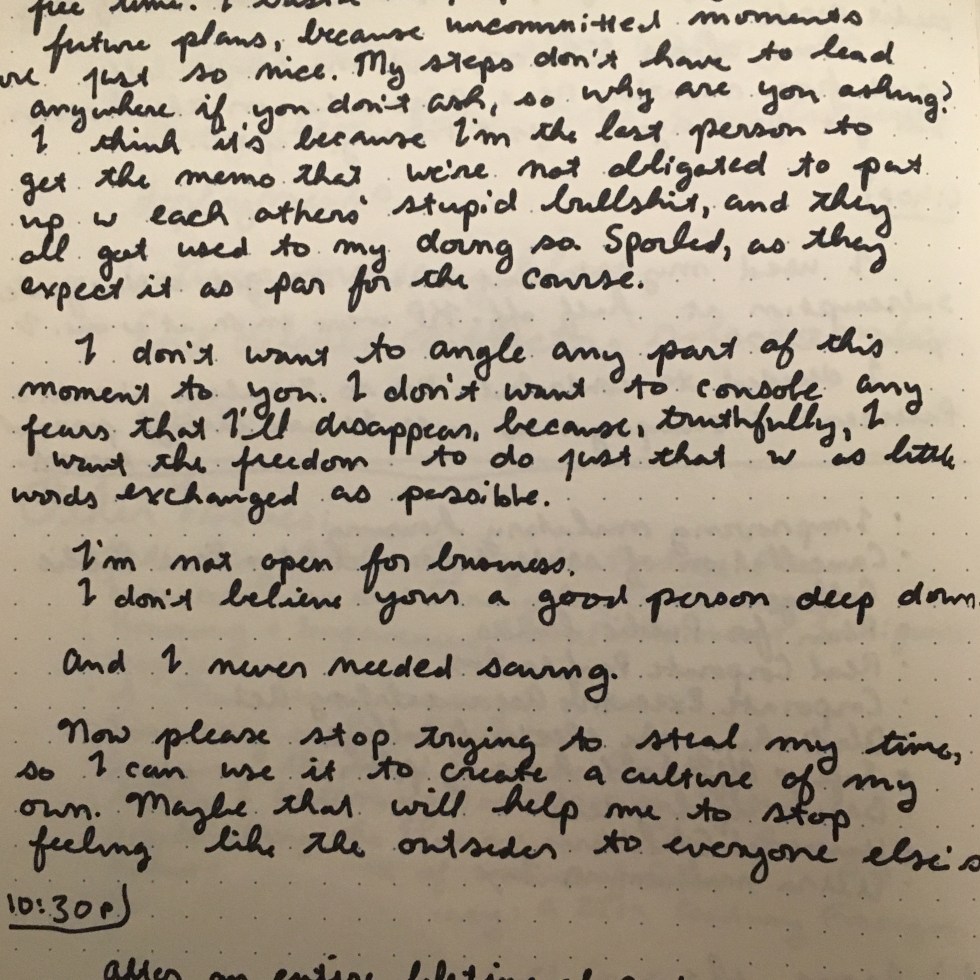 free time. I
future plans, because uncommitted moments
are just so nice. My steps don't have to lead
anywhere if you don't ask, so why are you asking?
I think it's because I'm the last person to
get the memo that we're not obligated to put
up w each others' stupid bullshit, and they
all got used to my doing so. Spoiled, as they
expect it as par for the course.
I don't want to angle any part of this
moment to you. I don't want to console any
fears that I'll disappear, because, truthfully, I
want the freedom to do just that w as little
words exchanged as possible.
I'm not open for business.
I don't believe your a good person deep down
And I never needed saving.
Now please stop trying to steal my time,
so I can use it to create a culture of my
own. Maybe that will help me to stop
feeling like the outsider to everyone else's
10:30p
After an entire lifetime of